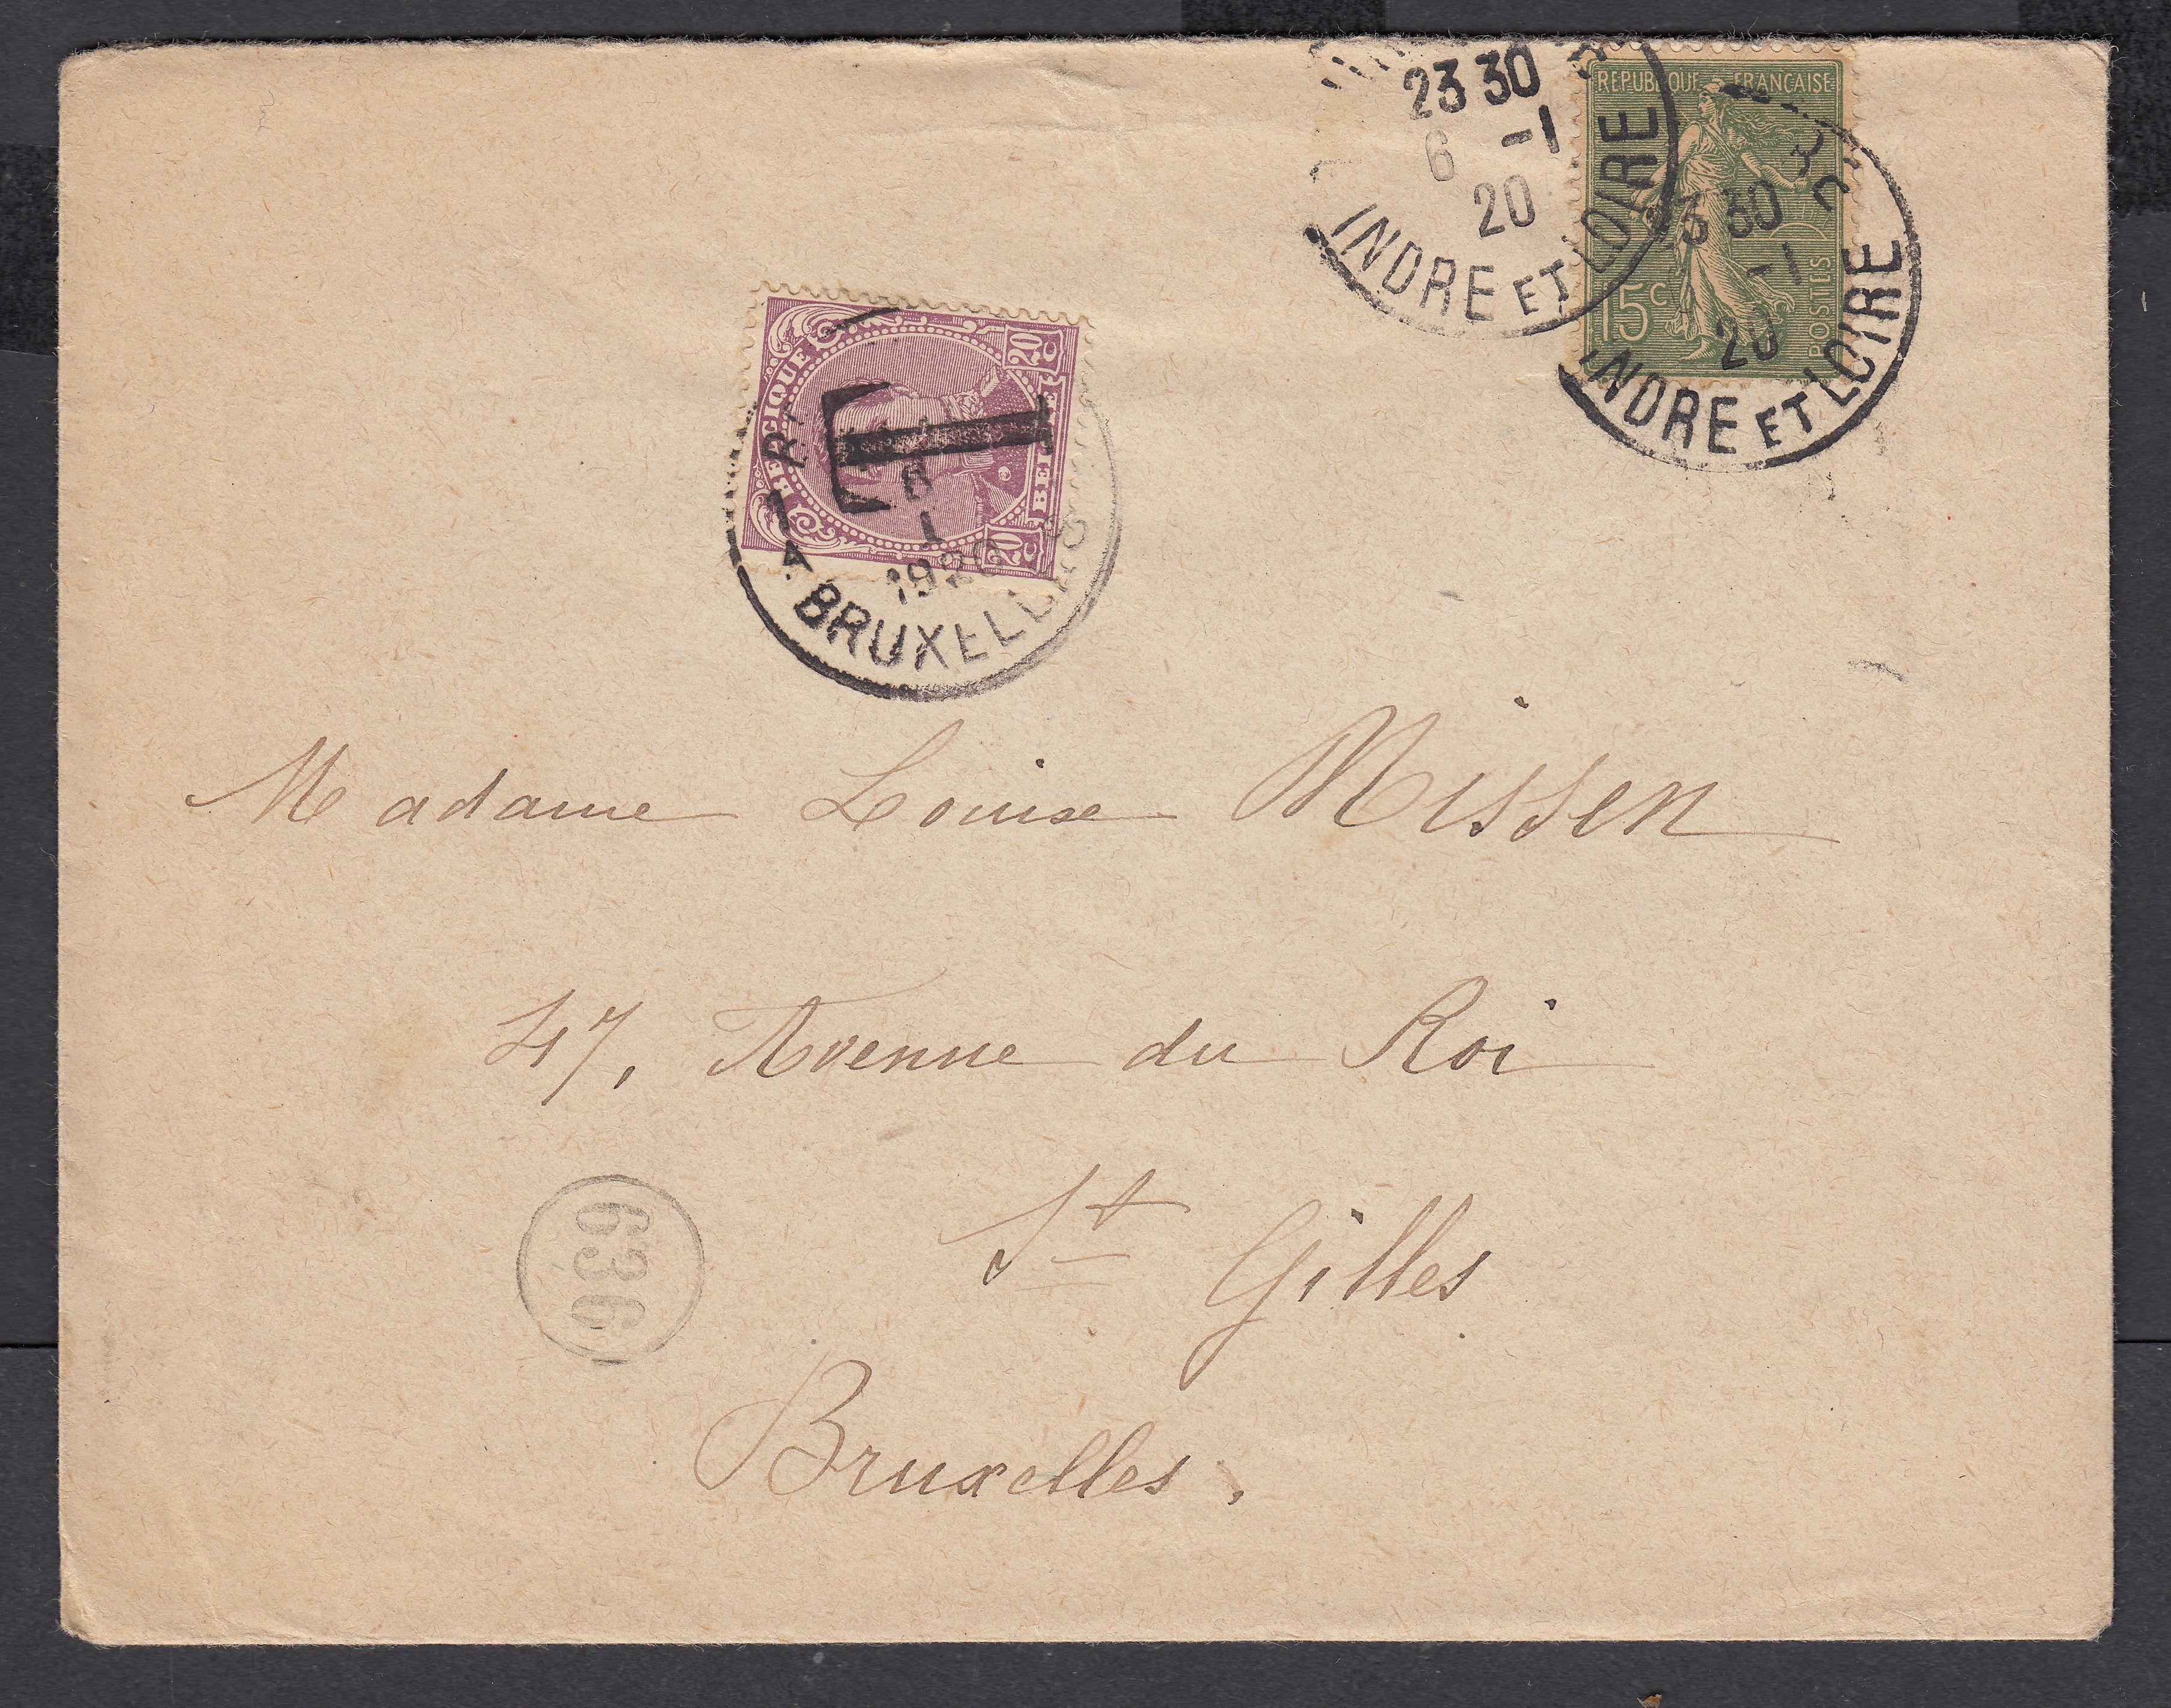 23 30
6 -1
20
INDRE ET LOIRE
REPUBLIQUE FRANÇAISE
15c
POSTES
3 30
-1
20
INDRE ET LOIRE
BELGIQUE
20 C
BELGIË
20 C
T
1
A
8
I
1920
BRUXELLES
Madame Louise Missen
47, Avenue du Roi
St Gilles
Bruxelles.
636